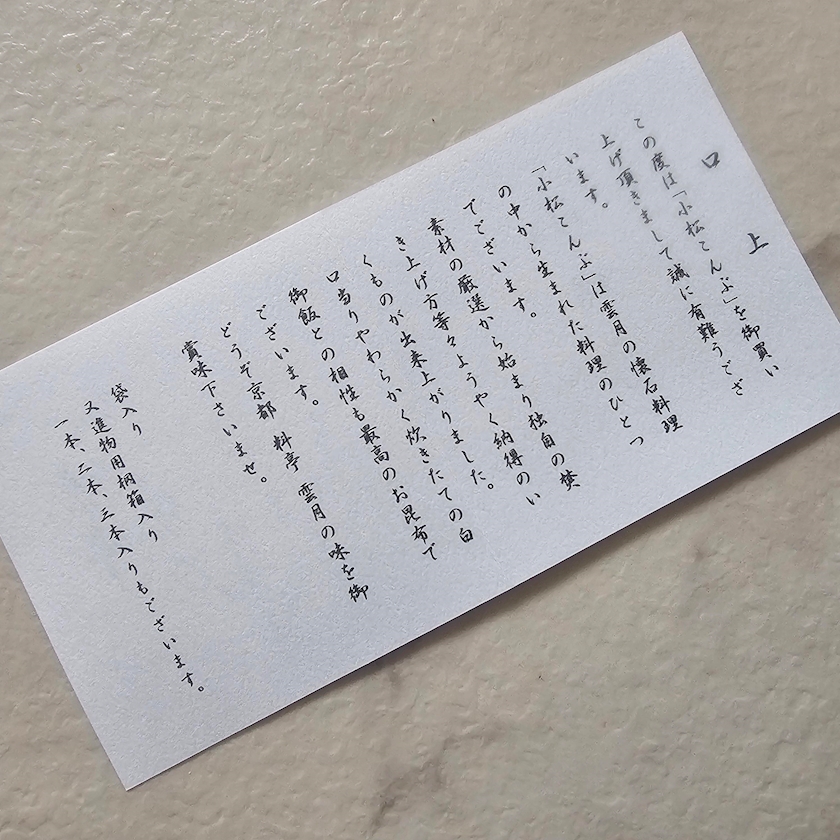 口上
この度は「小松こんぶ」を御買い
上げ頂きまして誠に有難うござ
います。
「小松こんぶ」は雲月の懐石料理
の中から生まれた料理のひとつ
でございます。
素材の厳選から始まり独自の焚
き上げ方等々ようやく納得のい
くものが出来上がりました。
口当りやわらかく炊きたての白
御飯との相性も最高のお昆布で
ございます。
どうぞ京都 料亭 雲月の味を御
賞味下さいませ。
袋入り
又進物用桐箱入り
一本、二本、三本入りもございます。